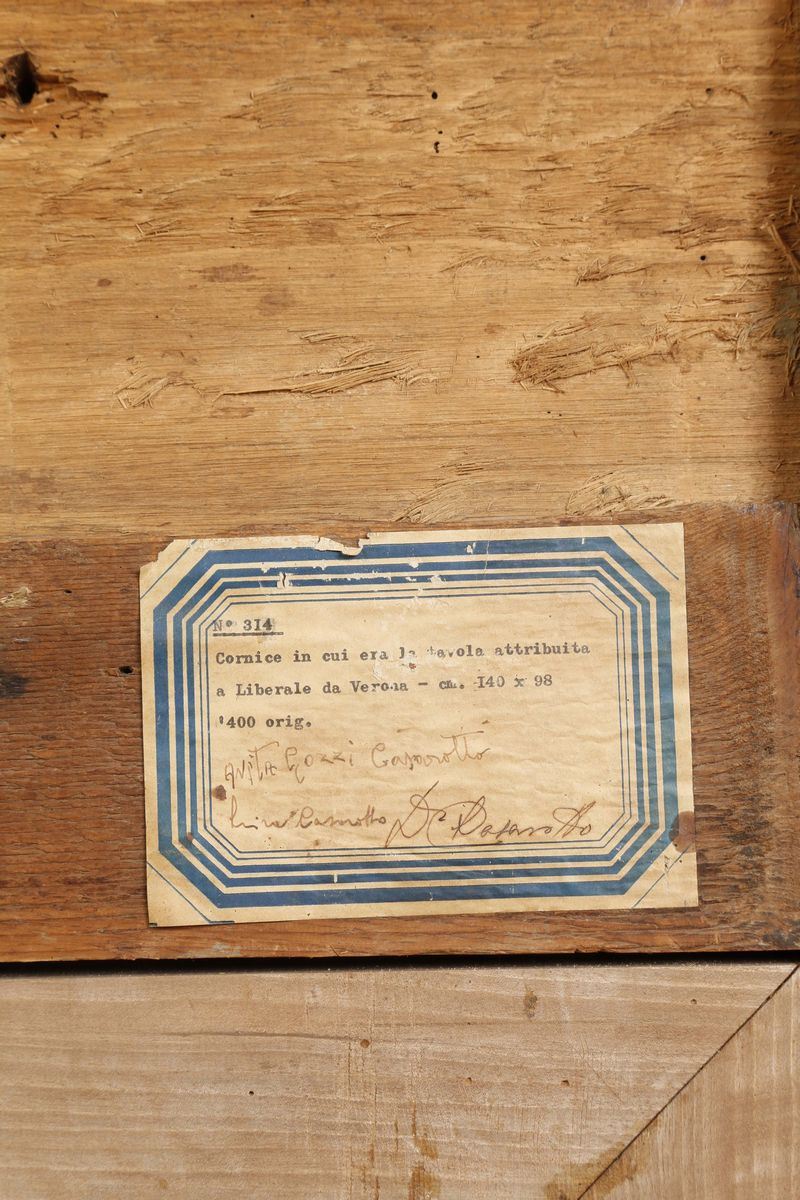 N° 314
Cornice in cui era la tavola attribuita
a Liberale da Verona - cm. 140 x 98
'400 orig.
Anita Gozzi Casarotto
Casarotto Casarotto